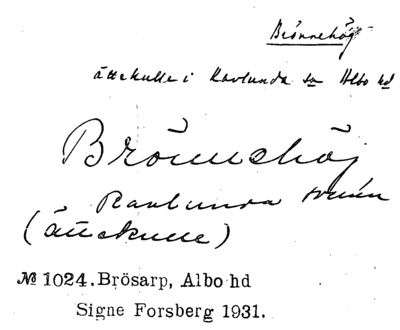 Brönnehög
ättekulle i Ravlunda sn Albo hd
Brönnehöj
Ravlunda socken
(ättekulle)
№ 1024. Brösarp, Albo hd
Signe Forsberg 1931.